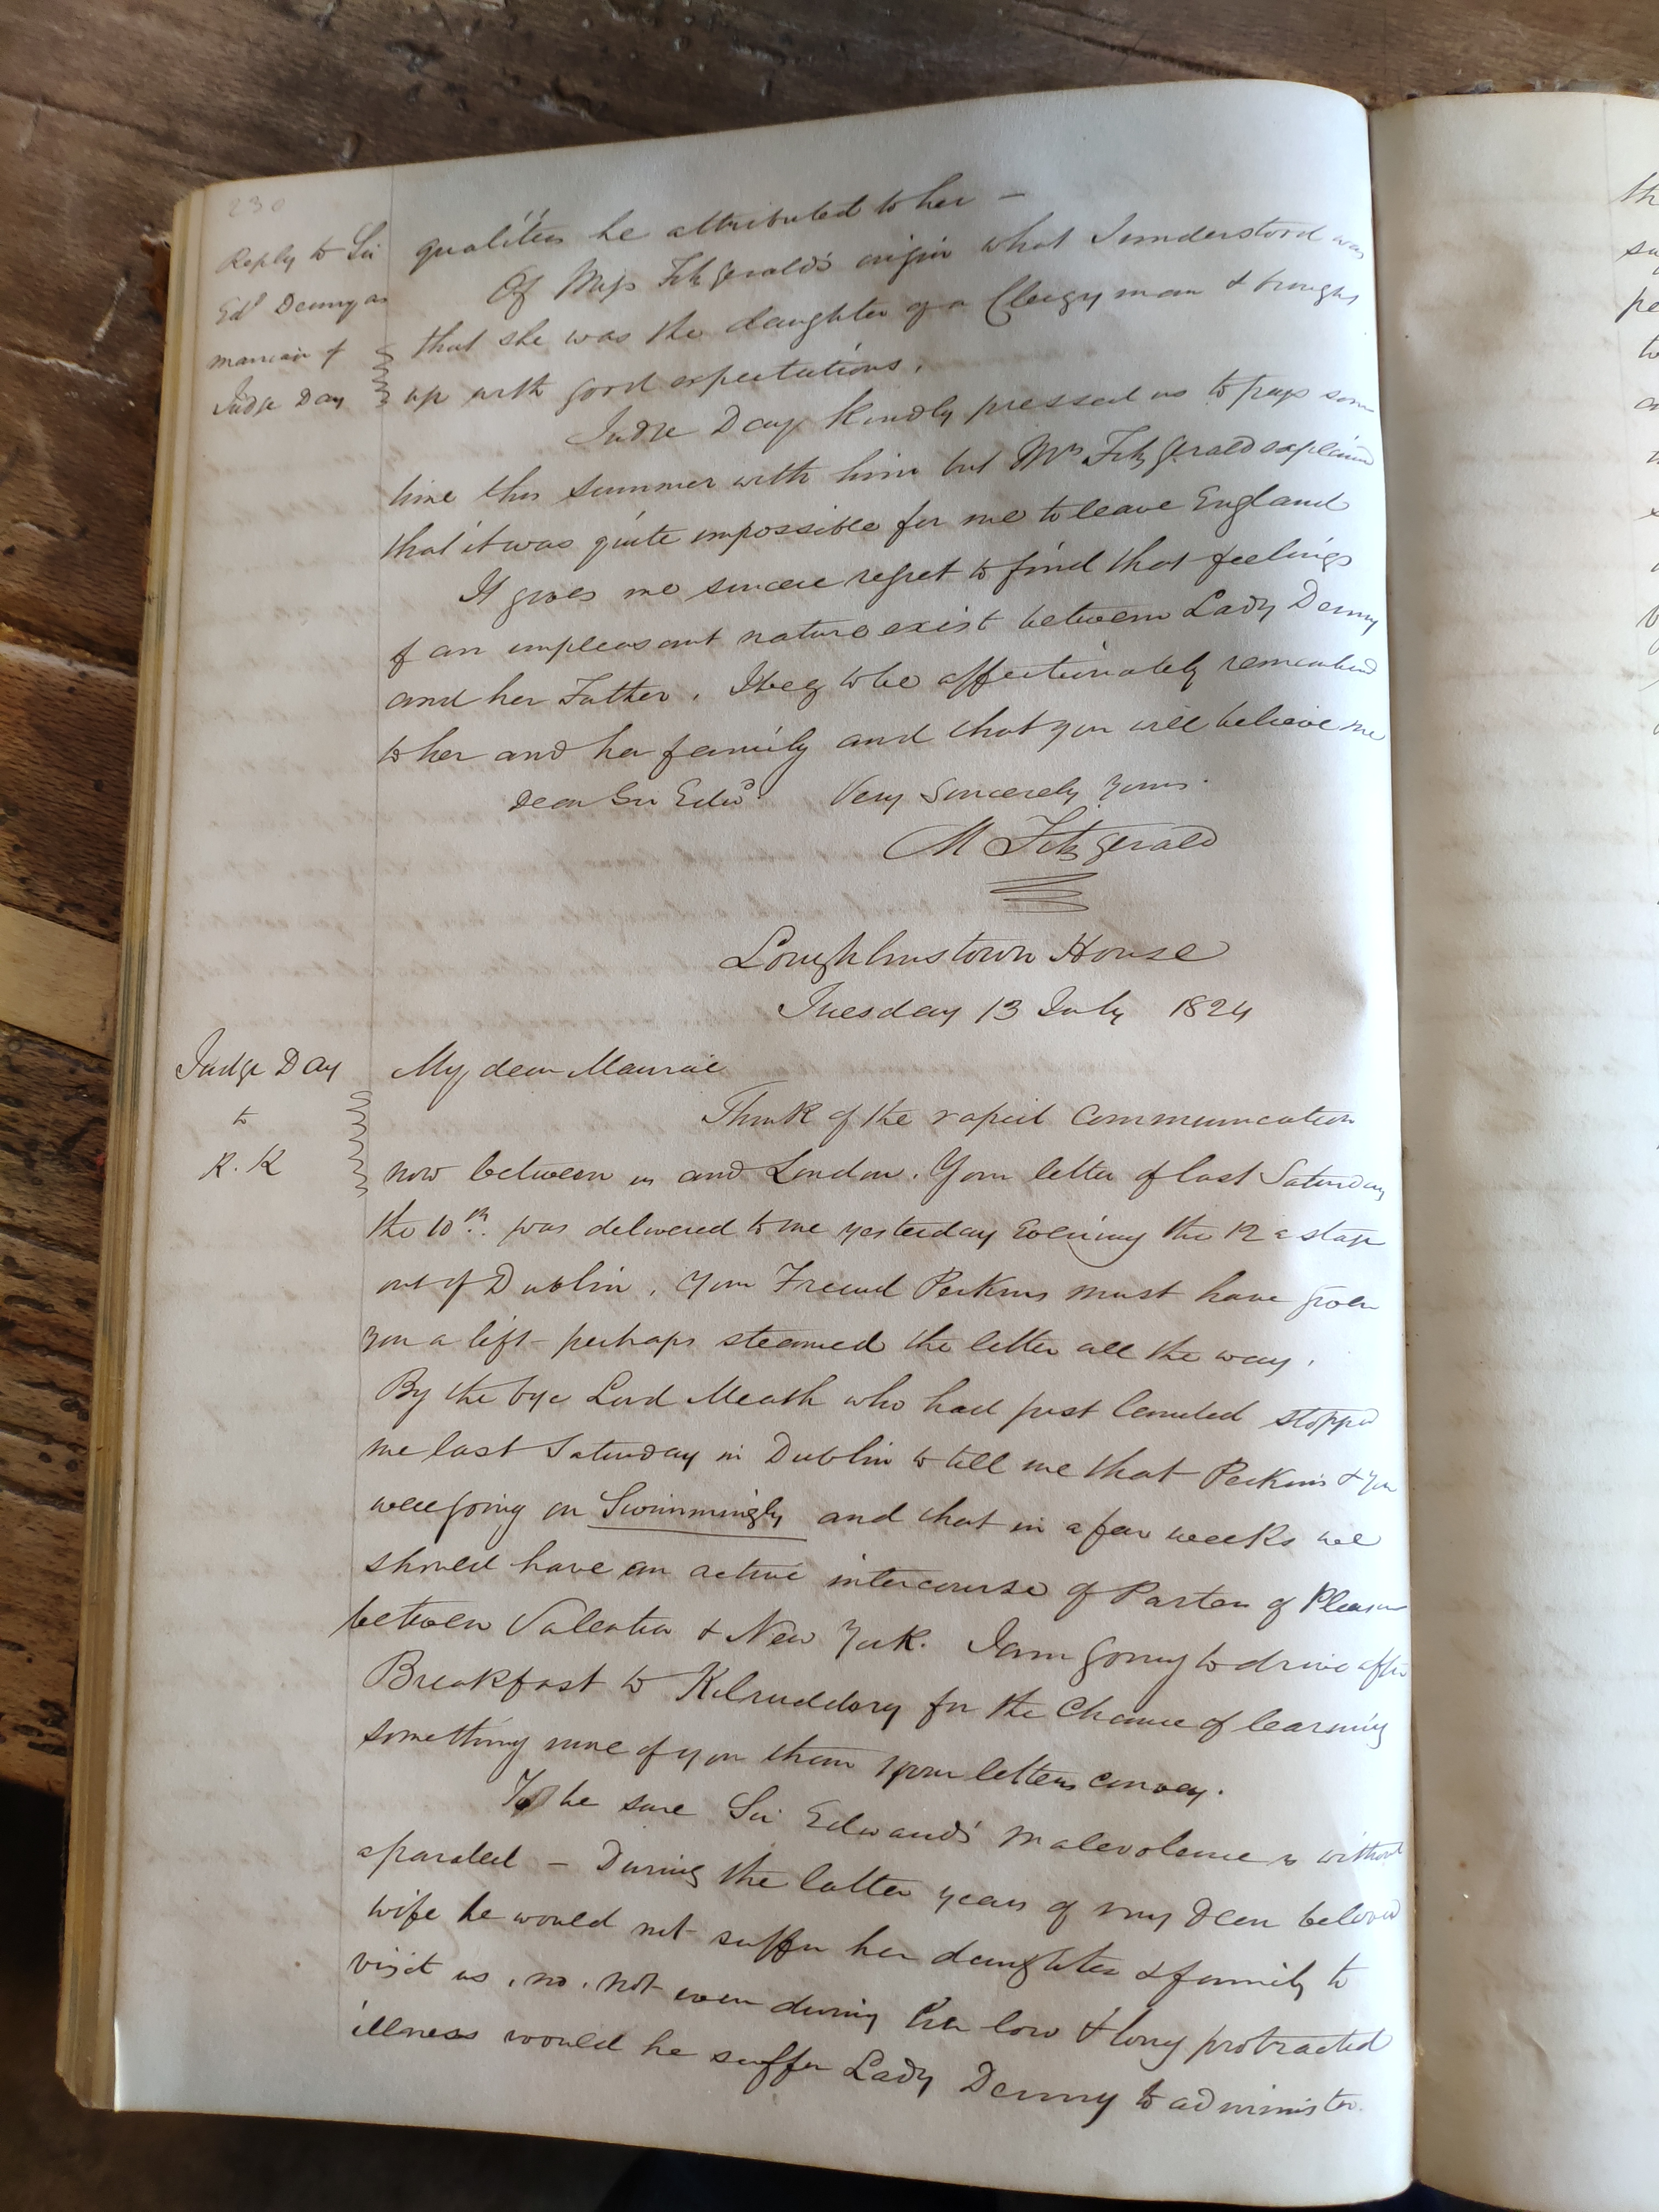 230
Reply to Sir
Edd Denny as
marriage of
Judge Day
qualities he attributed to her —
Of Miss FitzGerald's origin what I understood was
that she was the daughter of a Clergyman & brought
up with good expectations.
Judge Day kindly pressed us to pass some
time this summer with him but Mrs FitzGerald explained
that it was quite impossible for me to leave England
It gives me sincere regret to find that feelings
of an unpleasant nature exist between Lady Denny
and her Father. I beg to be affectionately remembered
to her and her family and that you will believe me
Dear Sir Edwd. Very Sincerely Yours.
M FitzGerald
Loughlinstown House
Tuesday 13 July 1824
Judge Day
to
K. K
My dear Maurice
Think of the rapid Communication
now between us and London. Your letter of last Saturday
the 10th. was delivered to me yesterday Evening the 12 a stage
out of Dublin. Your Friend Perkins must have given
you a lift - perhaps steamed the letter all the way.
By the bye Lord Meath who had just landed stopped
me last Saturday in Dublin to tell me that Perkins & you
were going on Swimmingly and that in a few weeks we
should have an active intercourse of Parties of Pleasure
between Valentia & New York. I am going to drive after
Breakfast to Kilruddery for the Chance of learning
something more of you than your letters convey.
To be sure Sir Edward's malevolence is without
a parallel — During the latter years of my Dear beloved
wife he would not suffer her daughter & family to
visit us, no, not even during her low & long protracted
illness would he suffer Lady Denny to administer